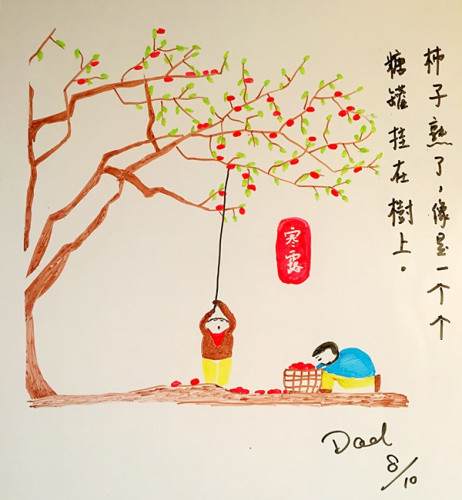 柿子熟了,像是一个个
糖罐挂在樹上。
寒露
Dad
8/10